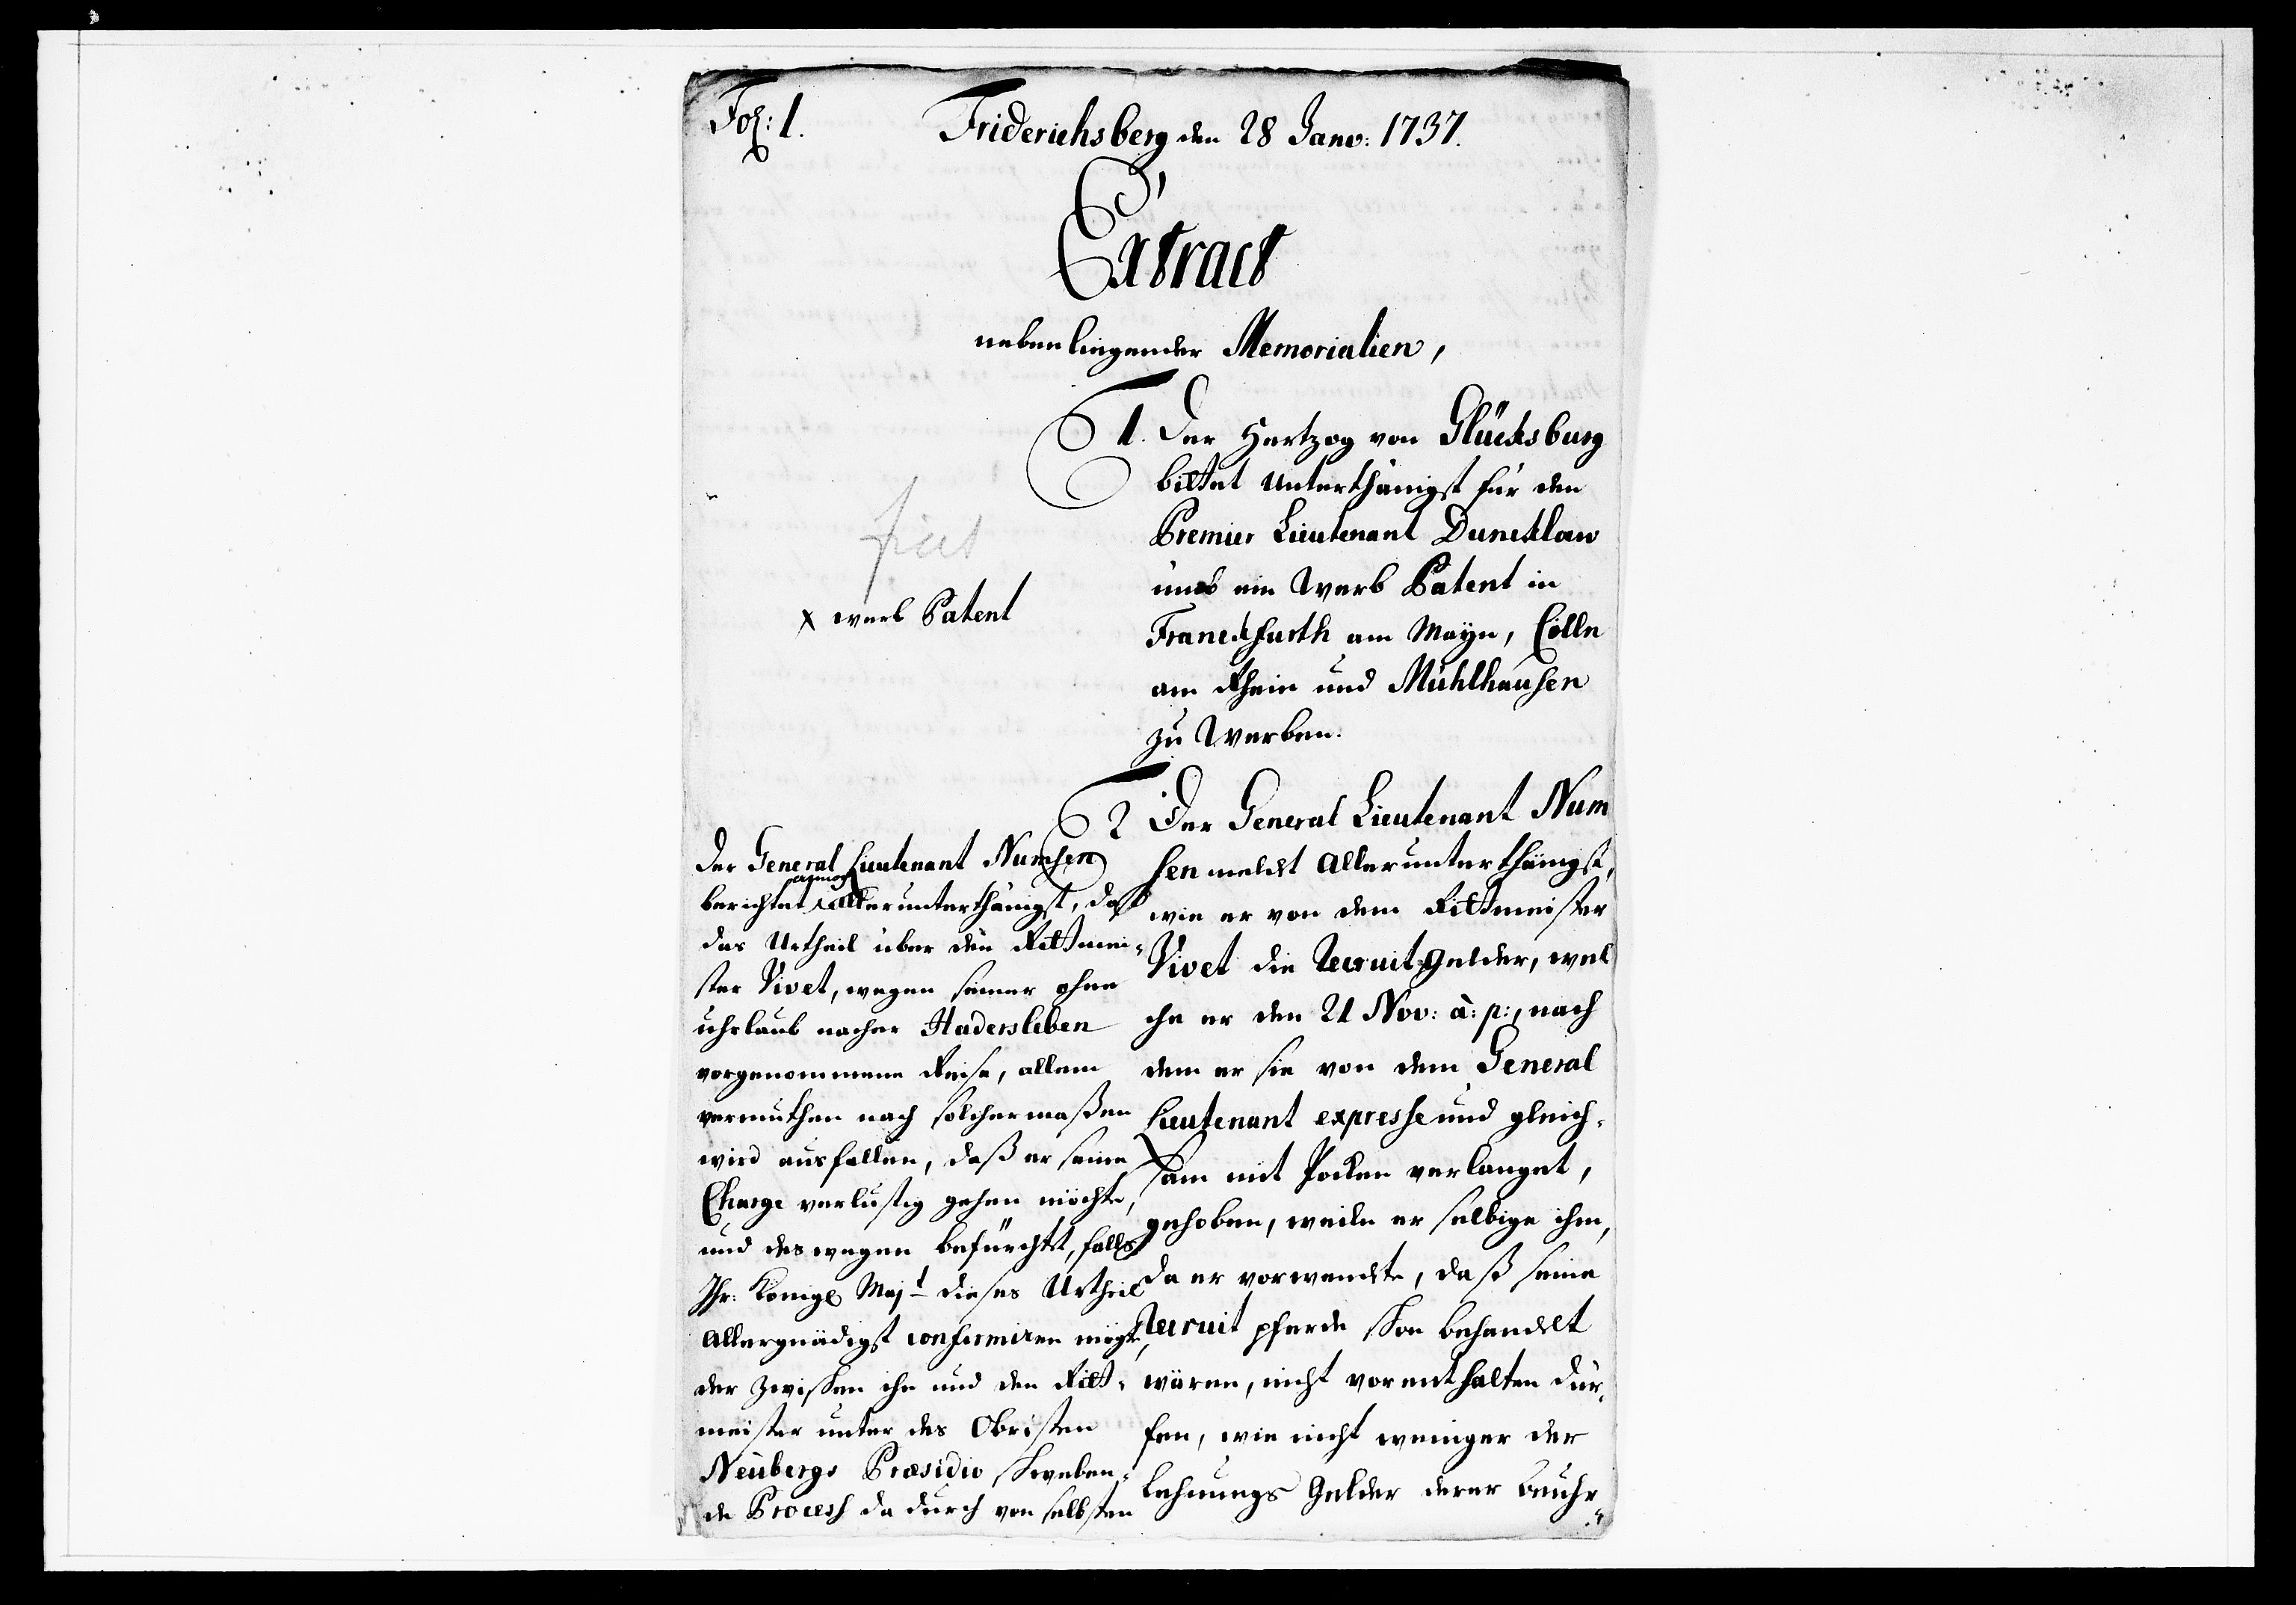 Fol: 1.
Friderichsberg den 28 Janv: 1737.
Extract
nebenliegender Memorialien,
1. Der Hertzog von Glücksburg
bittet unterthänigst für den
Premier Lieutenant Duncklau
umb ein Werb Patent in
Franckfurth am Mayn, Cölln
am Rhein und Mühlhausen
zu Werben.
fiat
x werb Patent
2 Der General Lieutenant Num
sen meldet allerunterthänigst,
wie er von dem Rittmeister
Vivet die Recruit gelder, wel
che er den 21 Nov: a: p:, nach
dem er sie von dem General
Lieutenant expresse und gleich-
sam mit Pochen verlanget,
gehoben, weile er selbige ihm,
da er vorwendete, daß seine
Recruit pferde schon behandelt
wären, nicht vorenthalten dür-
fen, wie nicht weniger der
Lehnungs Gelder derer
Der General Lieutenant Numsen
berichtet allerunterthänigst, daß
das Urtheil über den Rittmei-
ster Vivet, wegen seiner ohne
uhrlaub nacher Hadersleben
vorgenommene Reise, allem
vermuthen nach solchermaßen
wird ausfallen, daß er seine
Charge verlustig gehen möchte,
und deswegen befürchtet, falls
Ihr: Königl Majt dieses Urtheil
allergnädigst confirmiren mögte,
der zwischen ihn und den Ritt-
meister unter des Obristen
Neubergs Præsidio schweben-
de Process da durch von selbsten